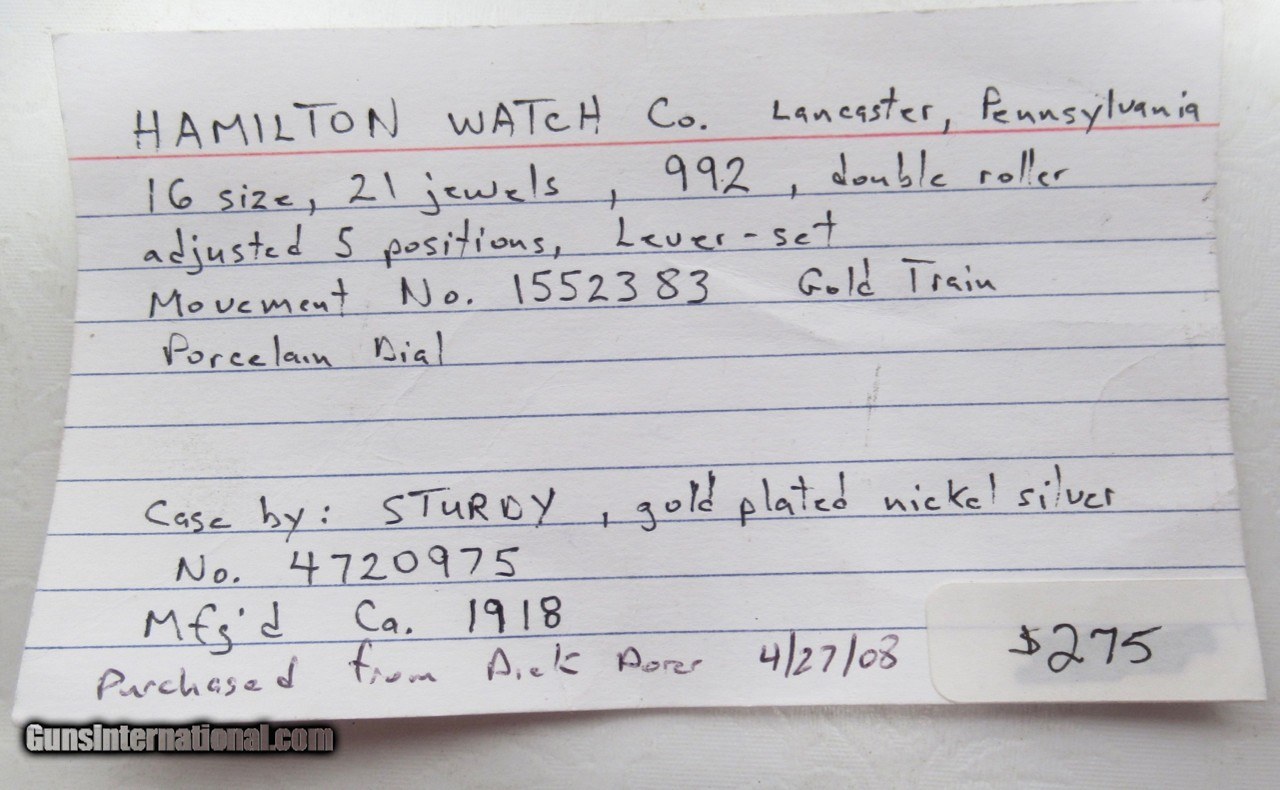 HAMILTON WATCH Co. Lancaster, Pennsylvania
16 size, 21 jewels, 992, double roller
adjusted 5 positions, Lever-set
Movement No. 1552383 Gold Train
Porcelain Dial
Case by: STURDY, gold plated nickel silver
No. 4720975
Mfg'd Ca. 1918
Purchased from Dick Dorer 4/27/08
$275
GunsInternational.com